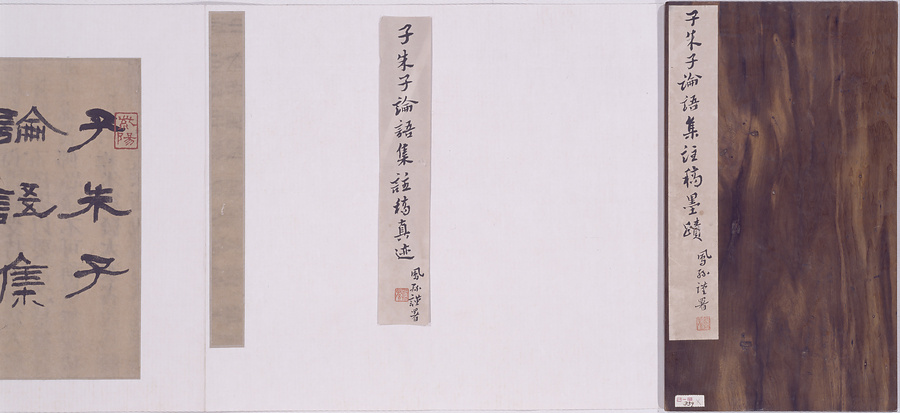 子朱子論語集註稿墨蹟
鳳孫謹署
子朱子論語集註稿真迹
鳳孫謹署
子朱子
論語集